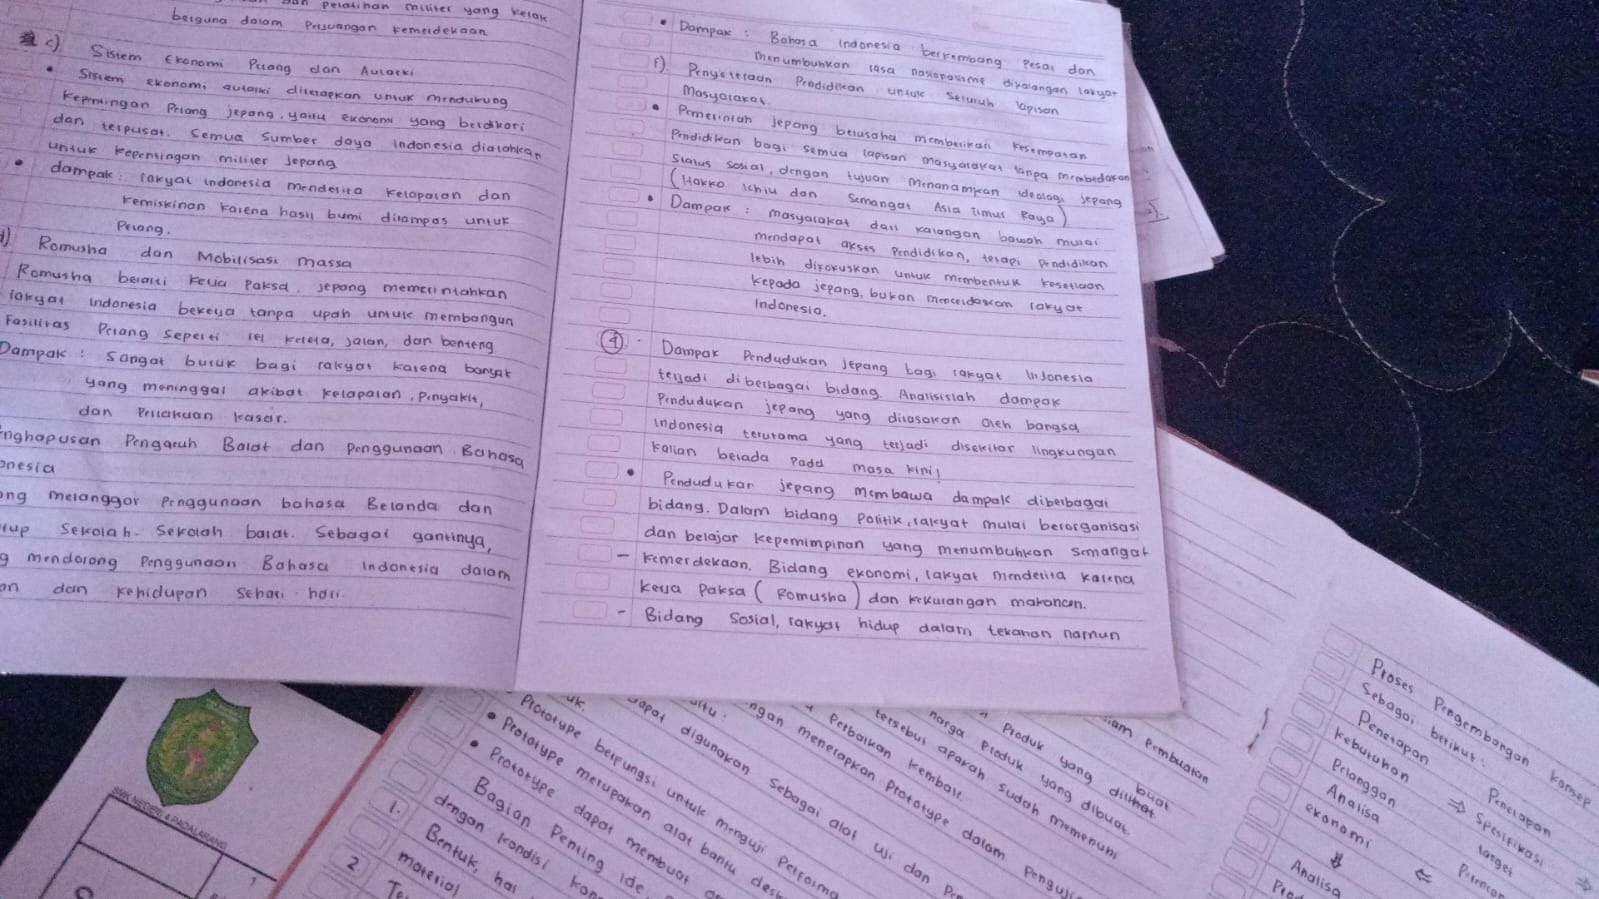 dan pelatihan militer yang kelak
berguna dalam Perjuangan kemerdekaan
c) Sistem Ekonomi Perang dan Autarki
• Sistem ekonomi autarki diterapkan untuk mendukung
kepentingan Perang jepang, yaitu ekonomi yang berdikari
dan terpusat. Semua sumber daya Indonesia diarahkan
untuk kepentingan militer Jepang
• dampak: rakyat indonesia menderita kelaparan dan
kemiskinan karena hasil bumi dirampas untuk
Perang.
d) Romusha dan Mobilisasi massa
Romusha berarti kerja Paksa. jepang memerintahkan
rakyat indonesia bekerja tanpa upah untuk membangun
Fasilitas Perang seperti rel kereta, jalan, dan benteng.
Dampak: Sangat buruk bagi rakyat karena banyak
yang meninggal akibat kelaparan, Penyakit,
dan Perlakuan kasar.
nghapusan Pengaruh Barat dan Penggunaan Bahasa
onesia
ng melanggar Penggunaan bahasa Belanda dan
tup Sekolah-Sekolah barat. Sebagai gantinya,
g mendorong Penggunaan Bahasa Indonesia dalam
an dan kehidupan Sehari-hari.
• Dampak : Bahasa Indonesia berkembang Pesat dan
menumbuhkan rasa nasionalisme dikalangan rakyat
f) Penyetaraan Pendidikan untuk Seluruh lapisan
Masyarakat
• Pemerintah Jepang berusaha memberikan kesempatan
Pendidikan bagi semua lapisan masyarakat tanpa membedakan
Status sosial, dengan tujuan menanamkan ideologi jepang
(Hakko Ichiu dan Semangat Asia Timur Raya)
• Dampak : masyarakat dari kalangan bawah mulai
mendapat akses Pendidikan, tetapi Pendidikan
lebih difokuskan untuk membentuk kesetiaan
kepada jepang, bukan mencerdaskan rakyat
Indonesia.
4. Dampak Pendudukan Jepang bagi rakyat Indonesia
terjadi diberbagai bidang. Analisislah dampak
Pendudukan jepang yang dirasakan oleh bangsa
Indonesia terutama yang terjadi disekitar lingkungan
kalian berada Pada masa kini!
• Pendudukan jepang membawa dampak diberbagai
bidang. Dalam bidang Politik, rakyat mulai berorganisasi
dan belajar kepemimpinan yang menumbuhkan semangat
– kemerdekaan. Bidang ekonomi, rakyat menderita karena
kerja Paksa (Romusha) dan kekurangan makanan.
– Bidang Sosial, rakyat hidup dalam tekanan namun
SMK NEGERI 4 PADALARANG
uk.
Prototype berfungsi untuk menguji Performa
• Prototype merupakan alat bantu
• Prototype dapat membuat
1. Bagian Penting ide
dengan kondisi
2. Bentuk,
material
dapat digunakan Sebagai alat uji dan
aitu:
ngan menerapkan Prototype dalam
Perbaikan kembali.
tersebut apakah sudah memenuhi
harga Produk yang dibuat.
Produk yang dilihat
buat
Pembuatan
Proses Pengembangan konsep
Sebagai berikut:
Penetapan
kebutuhan
Pelanggan
⇒ Penetapan
Spesifikasi
target
⇒
Analisa
ekonomi
⇐
⇓
Analisa